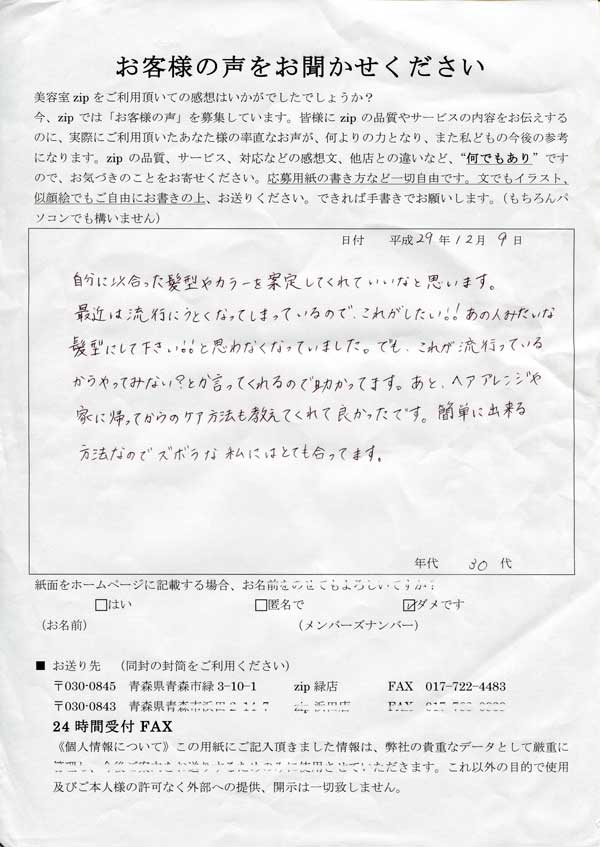 お客様の声をお聞かせください
美容室 zip をご利用頂いての感想はいかがでしたでしょうか？
今、zip では「お客様の声」を募集しています。皆様に zip の品質やサービスの内容をお伝えする
のに、実際にご利用頂いたあなた様の率直なお声が、何よりの力となり、また私どもの今後の参考
になります。zip の品質、サービス、対応などの感想文、他店との違いなど、“何でもあり”です
ので、お気づきのことをお寄せください。応募用紙の書き方など一切自由です。文でもイラスト、
似顔絵でもご自由にお書きの上、お送りください。できれば手書きでお願いします。（もちろんパ
ソコンでも構いません）
日付　平成29年12月9日
自分に似合った髪型やカラーを案定してくれていいなと思います。
最近は流行にうとくなってしまっているので、これがしたい!! あの人みたいな
髪型にして下さい!!と思わなくなっていました。でも、これが流行っている
からやってみない？とか言ってくれるので助かってます。あと、ヘアアレンジや
家に帰ってからのケア方法も教えてくれて良かったです。簡単に出来る
方法なのでズボラな私にはとても合ってます。
年代　30代
紙面をホームページに記載する場合、お名前をのせてもよろしいですか？
□はい　□匿名で　☑ダメです
（お名前）　（メンバーズナンバー）
■ お送り先　（同封の封筒をご利用ください）
〒030-0845　青森県青森市緑 3-10-1　zip 緑店　FAX　017-722-4483
〒030-0843　青森県青森市浜田 2-14-7　zip 浜田店　FAX
24 時間受付 FAX
《個人情報について》この用紙にご記入頂きました情報は、弊社の貴重なデータとして厳重に
管理し、今後ご案内をお送りするためのみに使用させていただきます。これ以外の目的で使用
及びご本人様の許可なく外部への提供、開示は一切致しません。